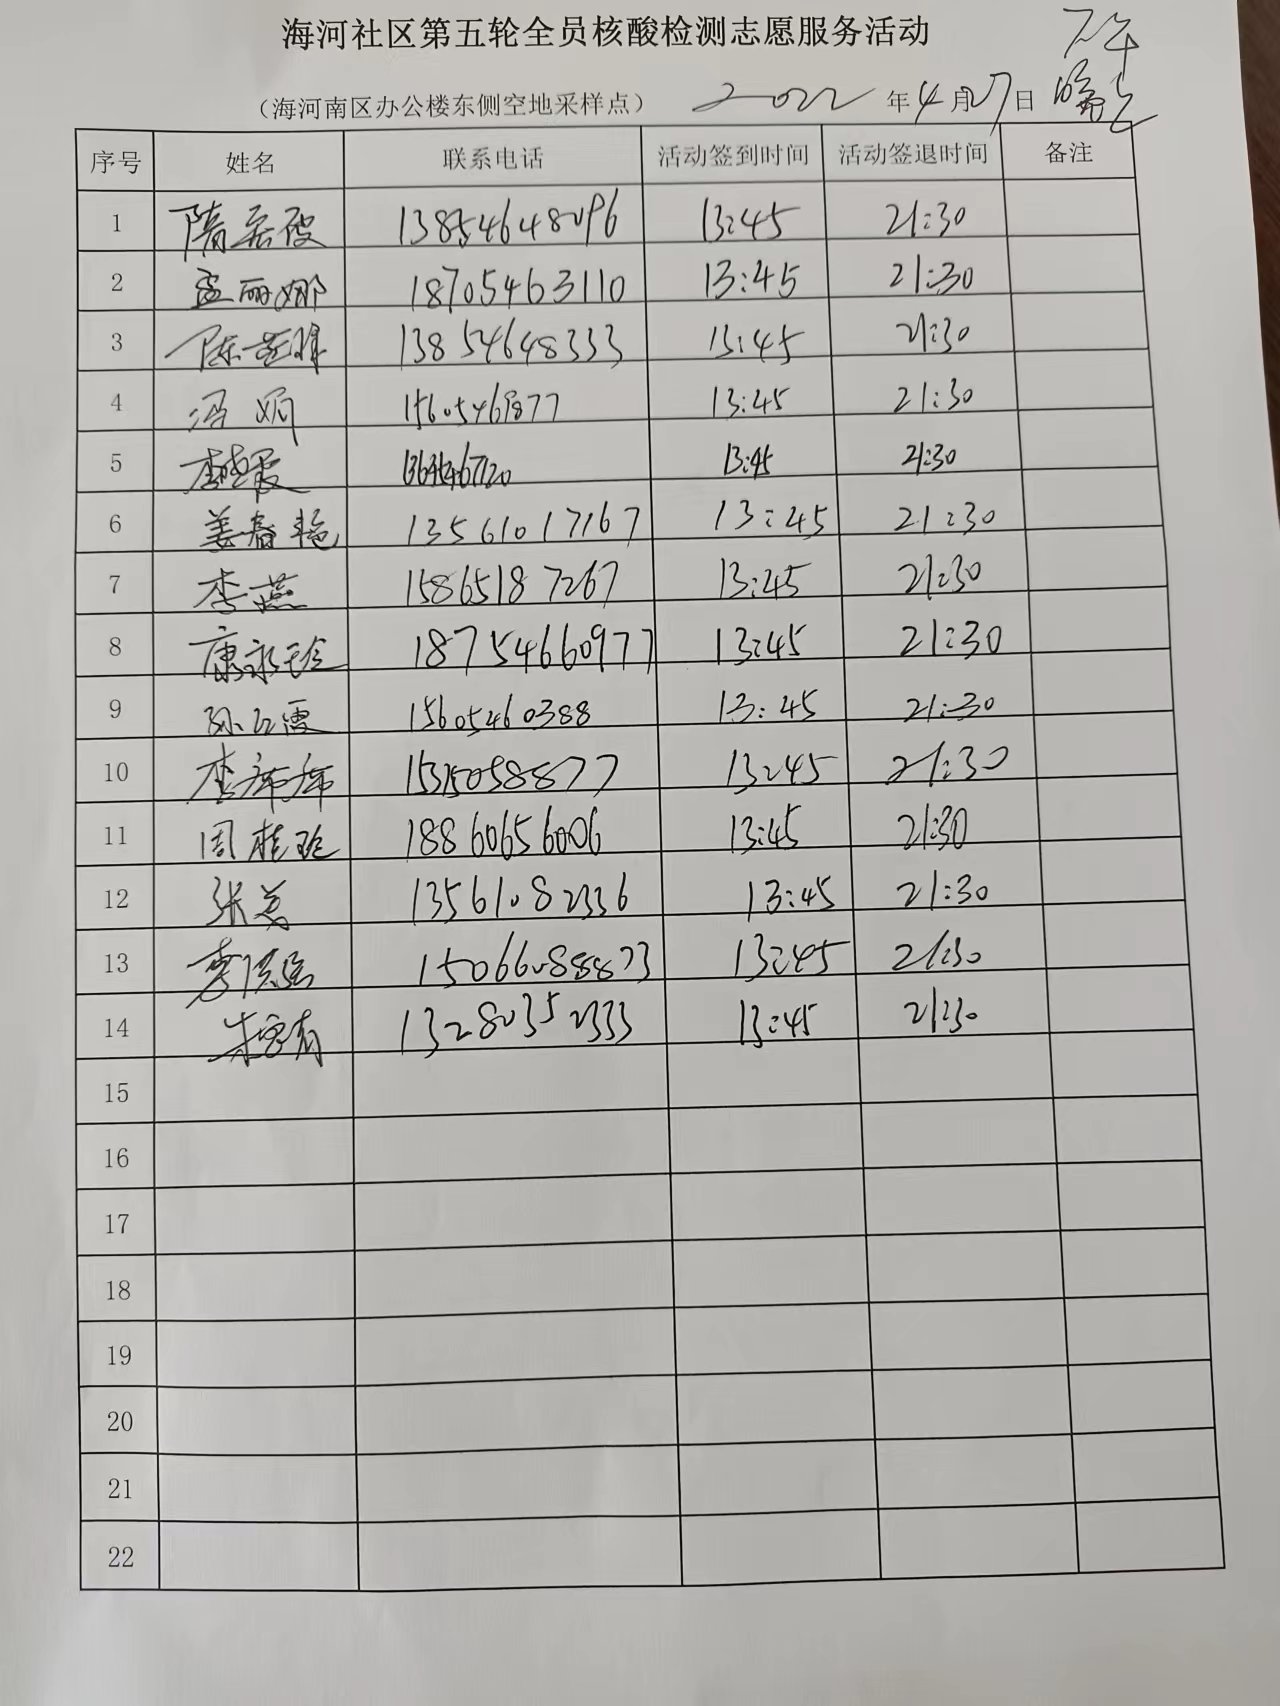 海河社区第五轮全员核酸检测志愿服务活动
下午
(海河南区办公楼东侧空地采样点) 2022年4月27日
序号 姓名 联系电话 活动签到时间 活动签退时间 备注
1 13854648096 13:45 21:30
2 孟丽娜 18705463110 13:45 21:30
3 13854648333 13:45 21:30
4 冯娟 15605469877 13:45 21:30
5 李晓霞 13:45 21:30
6 姜春艳 13561017167 13:45 21:30
7 李燕 15865187267 13:45 21:30
8 康永玲 18754660977 13:45 21:30
9 孙红霞 15605460388 13:45 21:30
10 13:45 21:30
11 周桂玲 18860656006 13:45 21:30
12 13561082336 13:45 21:30
13 15066088873 13:45 21:30
14 13280352333 13:45 21:30
15
16
17
18
19
20
21
22